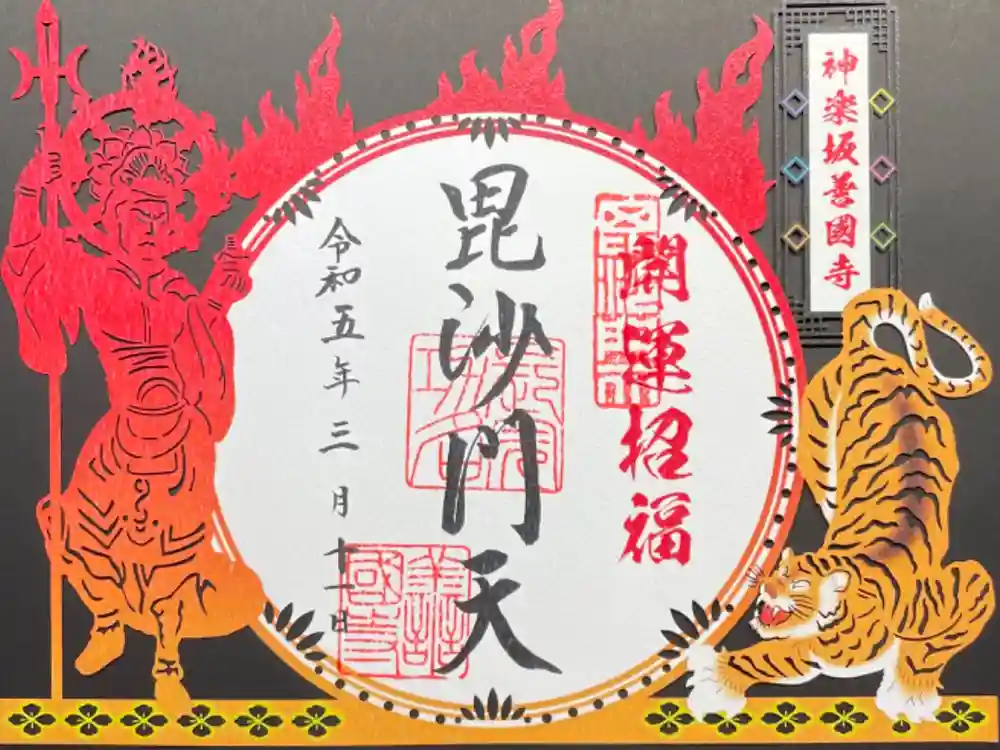 神楽坂善國寺
開運招福
毘沙門天
令和五年三月十一日
善國寺